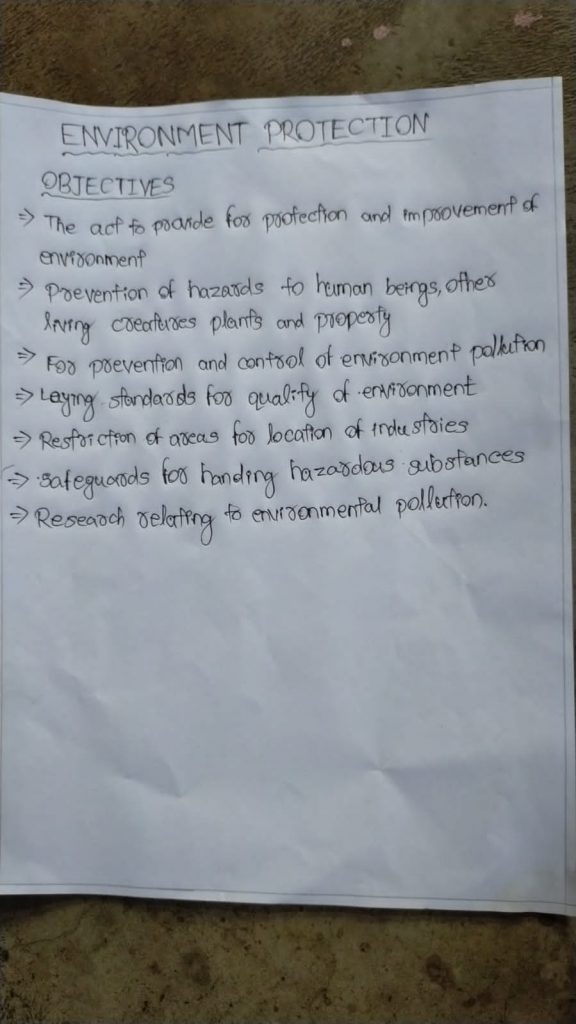 ENVIRONMENT PROTECTION
OBJECTIVES
⇒ The act to provide for protection and improvement of
environment
⇒ Prevention of hazards to human beings, other
living creatures plants and property
⇒ For prevention and control of environment pollution
⇒ Laying standards for quality of environment
⇒ Restriction of areas for location of industries
⇒ Safeguards for handing hazardous substances
⇒ Research relating to environmental pollution.